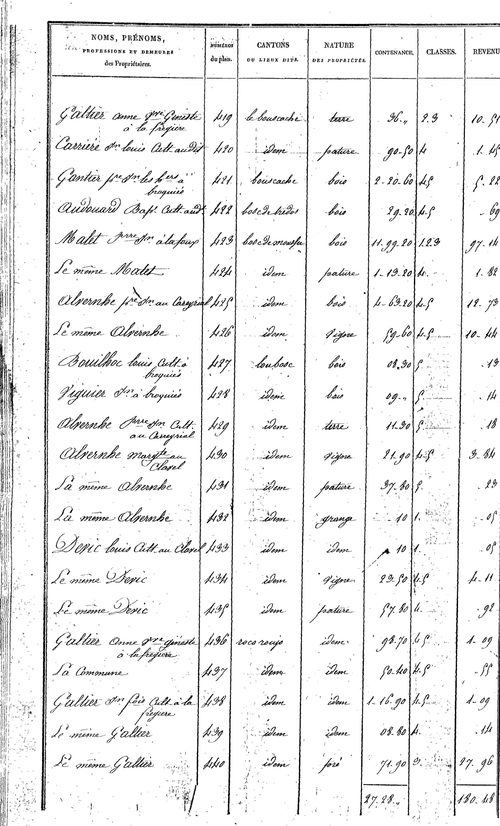 NOMS, PRÉNOMS, PROFESSIONS ET DEMEURES des Propriétaires. NUMÉROS du plan. CANTONS OU LIEUX DITS. NATURE DES PROPRIÉTÉS. CONTENANCE. CLASSES. REVENU
Galtier anne Vve Geniste à la fregiere 419 le bouscache terre 36 „ 2.3 10.51
Carriere Jn louis Cult. audit 420 idem pature 90.50 4 1.45
Gantier pre Jn les hers à broquiés 421 bouscache bois 2.20.60 4.5 5.22
Audouard Bapt. Cult. aud. 422 bosc de bedos bois 29.20 4.5 .69
Malet pierre Jn à lafoux 423 bosc de bois 11.99.20 1.2.3 97.14
Le même Malet 424 idem pature 1.13.20 4. 1.82
Alvernhe pre Jn au Carreyrial 425 idem bois 4.63.20 4.5 12.73
Le même Alvernhe 426 idem vigne 59.60 4.5 10.44
Bouilhoc louis Cult. à broquiés 427 loubosc bois 08.30 5 .13
Viguier Jn à broquiés 428 idem bois 09 „ 5 .14
Alvernhe pierre Jn Cult. au Carreyrial 429 idem terre 11.30 5 .18
Alvernhe margte au Clavel 430 idem vigne 21.90 4.5 3.84
La même Alvernhe 431 idem pature 37.80 5. .23
La même Alvernhe 432 idem grange .10 1. .05
Deric louis Cult. au Clavel 433 idem idem .10 1. .05
Le même Deric 434 idem vigne 23.50 4.5 4.11
Le même Deric 435 idem pature 57.80 4. .92
Galtier anne Vve geniste à la fregiere 436 rocoroujo idem 98.70 4.5 1.09
La Commune 437 idem idem 50.40 4.5 .55
Galtier Jn fois Cult. à la fregiere 438 idem idem 1.16.90 4.5 1.09
Le même Galtier 439 idem idem 08.80 4. .14
Le même Galtier 440 idem pré 71.90 3. 27.96
27.28 „ 180.48